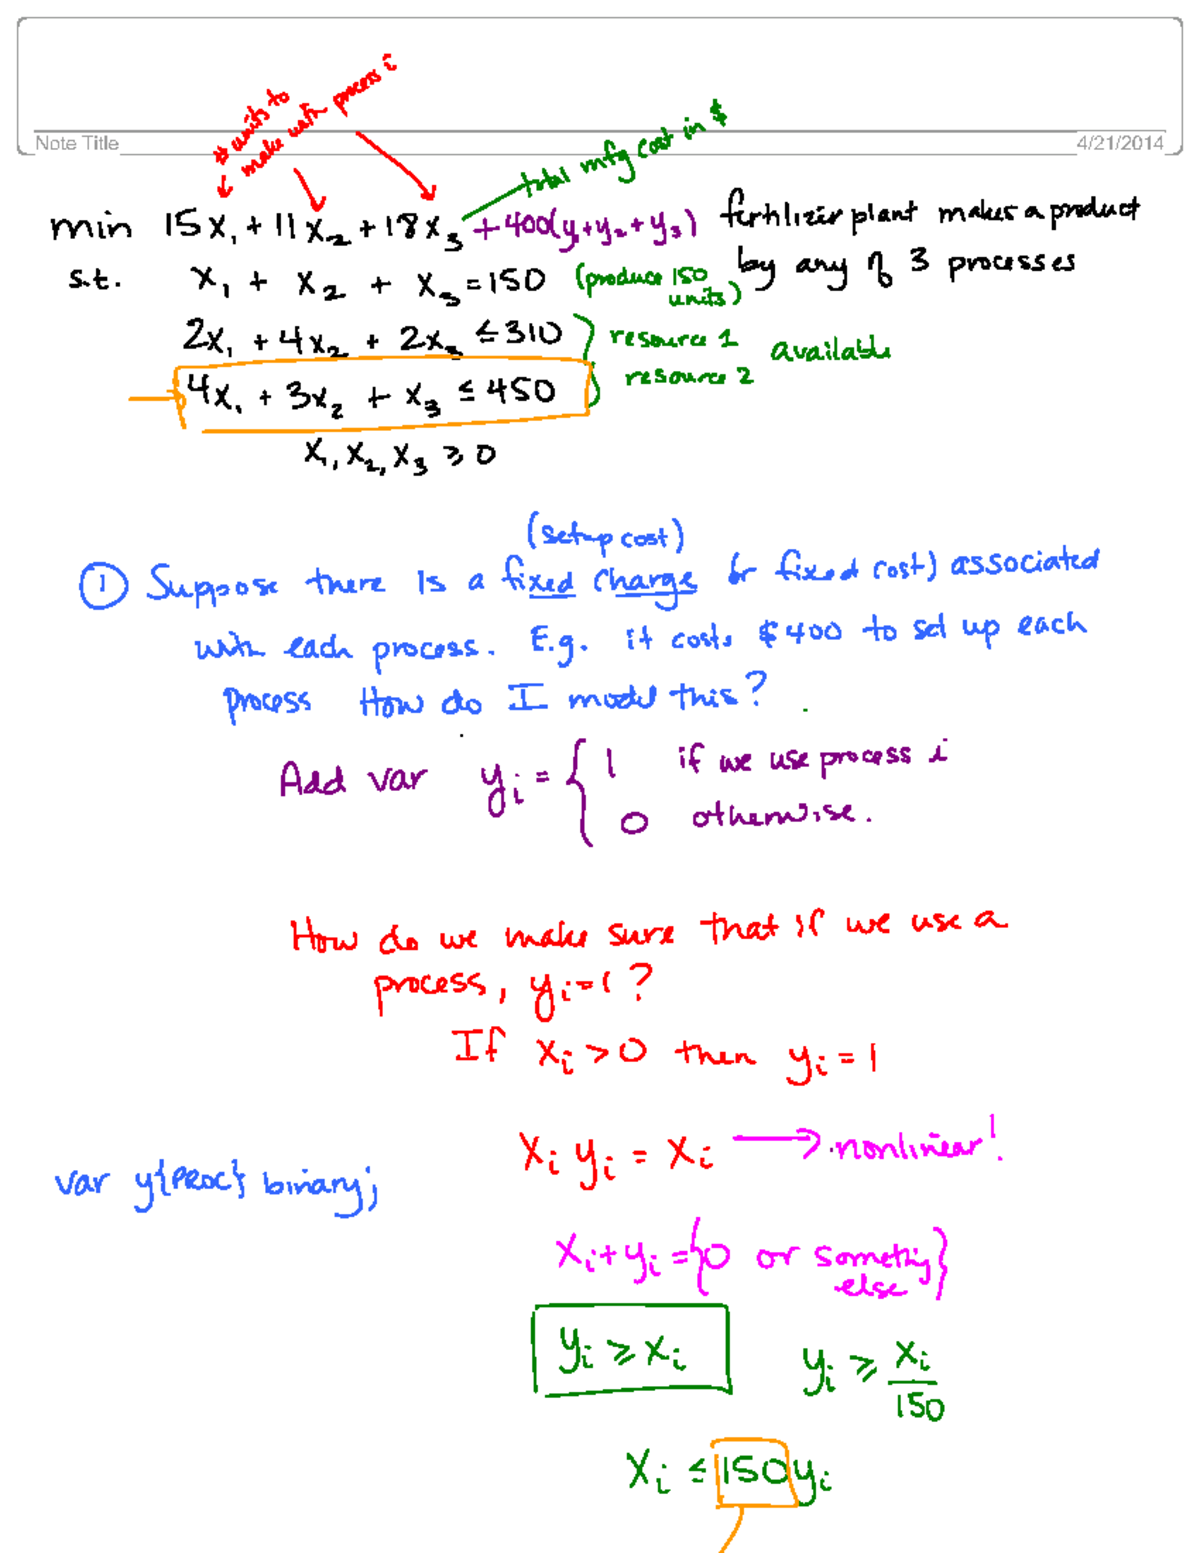 # units to
make with process i
total mfg cost in $
Note Title
4/21/2014
min 15x₁ + 11x₂ + 18x₃ + 400(y₁+y₂+y₃) fertilizer plant makes a product
s.t. x₁ + x₂ + x₃ = 150 (produce 150 units) by any of 3 processes
2x₁ + 4x₂ + 2x₃ ≤ 310 resource 1 available
4x₁ + 3x₂ + x₃ ≤ 450 resource 2
x₁, x₂, x₃ ≥ 0
(setup cost)
① Suppose there is a fixed charge (or fixed cost) associated
with each process. E.g. it costs $400 to set up each
process How do I model this?
Add var yᵢ = { 1 if we use process i
0 otherwise.
How do we make sure that if we use a
process, yᵢ=1?
If xᵢ > 0 then yᵢ = 1
xᵢ yᵢ = xᵢ → nonlinear!
var y{PROC} binary;
xᵢ + yᵢ = {0 or something
else}
yᵢ ≥ xᵢ yᵢ ≥ xᵢ/150
xᵢ ≤ 150yᵢ